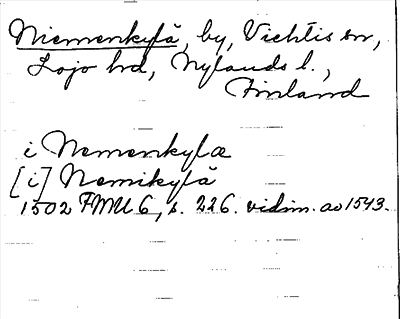 Niemenkylä, by, Vichtis sn,
Lojo hd, Nylands l.,
Finland
i Nemenkylæ
[i] Nemikylä
1502 FMU 6, s. 226. vidim. ao 1543.